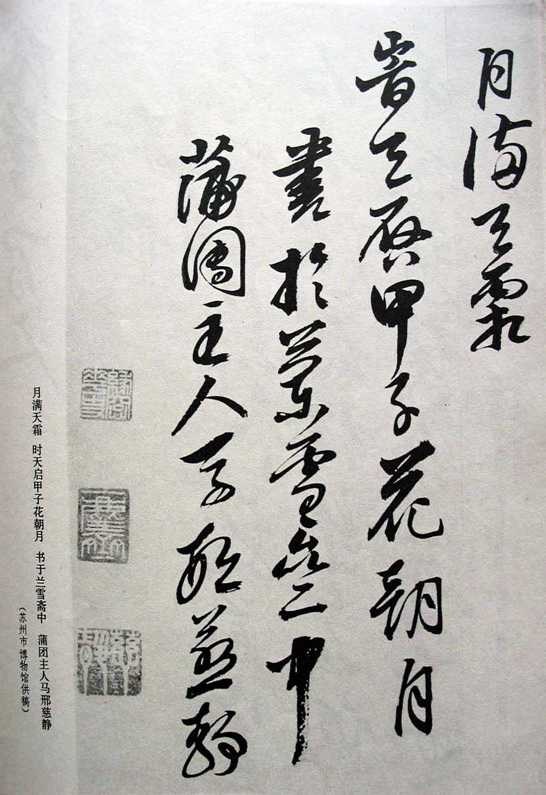 月滿天霜
旹天啟甲子花朝月
書於蘭雪齋中
蒲團主人馬邢慈靜
月满天霜 时天启甲子花朝月 书于兰雪斋中 蒲团主人马邢慈静
(苏州市博物馆供稿)